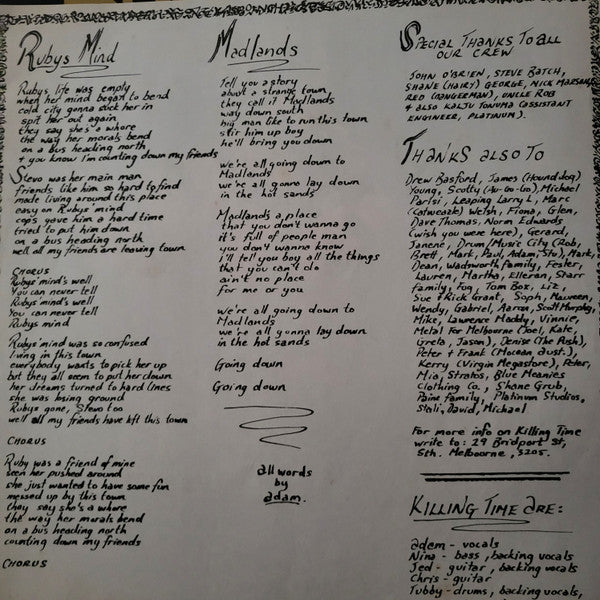 Rubys Mind
Rubys, life was empty
when her mind began to bend
cold city gonna suck her in
spit her out again
they say she's a whore
the way her morals bend
on a bus heading north
+ you know I'm counting down my friends
Stevo was her main man
friends like him so hard to find
made living around this place
easy on Rubys mind
cops gave him a hard time
tried to put him down
on a bus heading north
well all my friends are leaving town
CHORUS
Rubys' mind's well
You can never tell
Rubys' mind's well
You can never tell
Rubys mind
Rubys' mind was so confused
living in this town
everybody wants to pick her up
but they all seem to put her down
her dreams turned to hard lines
she was being ground
Rubys gone, Stevo too
well all my friends have left this town
CHORUS
Ruby was a friend of mine
seen her pushed around
she just wanted to have some fun
messed up by this town
they say she's a whore
the way her morals bend
on a bus heading north
counting down my friends
CHORUS
Madlands
Tell you a story
about a strange town
they call it Madlands
way down south
big man like to run this town
stir him up boy
he'll bring you down
we're all going down to
Madlands
we're all gonna lay down
in the hot sands
Madlands a place
that you don't wanna go
it's full of people man
you don't wanna know
I'll tell you boy all the things
that you can't do
ain't no place
for me or you
we're all going down to
Madlands
we're all gonna lay down
in the hot sands
Going down
Going down
all words
by
adam.
Special Thanks To all
our Crew
John O'Brien, Steve Batch,
Shane (Hairy) George, Nick Marsan,
Red (Dangerman), Uncle Rob
+ also Kalju Tonuma (Assistant
Engineer, Platinum).
Thanks also to
Drew Basford, James (Hound dog)
Young, Scotty (Au-Go-Go), Michael
Parisi, Leaping Larry L, Marc
(Catweazle) Welsh, Fiona, Glen,
Dave Thomas, Norm Edwards
(wish you were here), Gerard,
Janene, Drum/Music City (Rob,
Brett, Mark, Paul, Adam, Stu), Mark,
Dean, Wadnworth family, Fester,
Lauren, Martha, Elleran, Starr
family, Fog, Tom Box, Liz,
Sue + Rick Grant, Soph, Naureen,
Wendy, Gabriel, Aaron, Scott Murphy,
Mike, Lawrence Maddy, Vinnie,
Metal For Melbourne (Joel, Kate,
Greta, Jason), Denise (The Push),
Peter + Frank (Macean Aust.),
Kerry (Virgin Megastore), Peter,
Mia, Stratos, Blue Meanies
Clothing Co., Shane Grub,
Paine Family, Platinum Studios,
Stali, David, Michael
For more info on Killing Time
write to: 29 Bridport St,
Sth. Melbourne, 3205.
Killing Time are:
adam - vocals
Nina - bass, backing vocals
Jed - guitar, backing vocals
Chris - guitar
Tubby - drums, backing vocals,